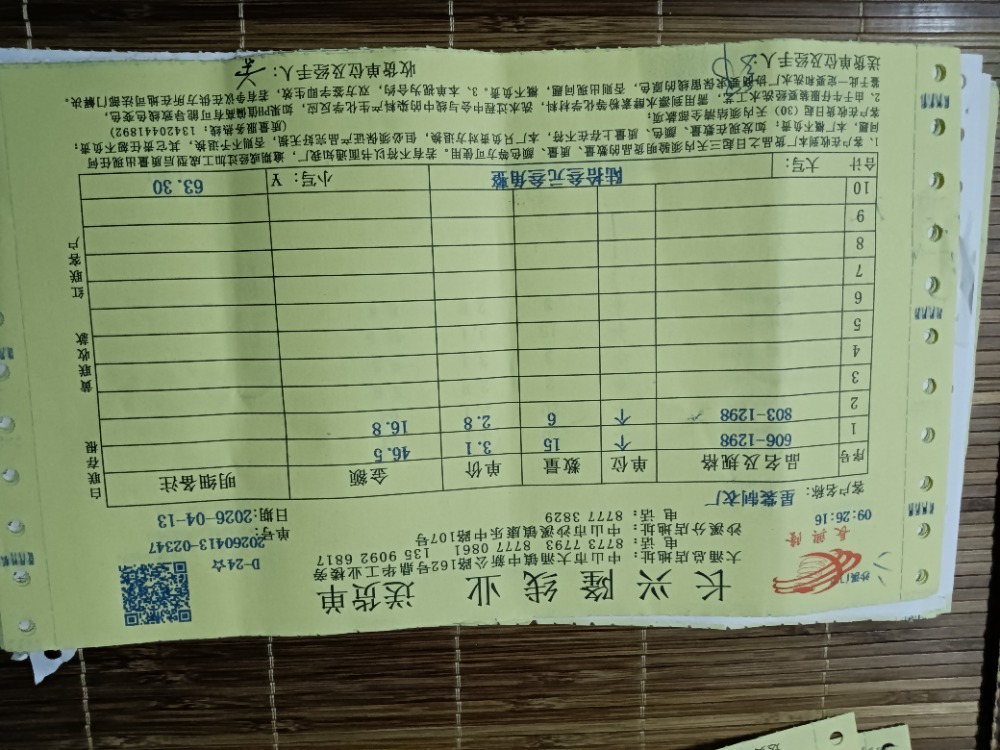 长兴隆线业 送货单
沙溪门
长兴隆
大涌总店地址：中山市大涌镇中新公路162号鼎华工业楼旁
电话：8773 7793 8777 0861 135 9092 6817
沙溪分店地址：中山市沙溪镇康乐中路107号
电话：8777 3829
D-24☆
单号：20260413-02347
日期：2026-04-13
09:26:16
客户名称：星裳制衣厂
序号 品名及规格 单位 数量 单价 金额 明细备注
1 606-1298 个 15 3.1 46.5
2 803-1298 个 6 2.8 16.8
3
4
5
6
7
8
9
10
合计 大写：陆拾叁元叁角整 小写：¥ 63.30
白联存根 黄联收款 红联客户
1. 客户在收到本厂货品之日起三天内须验明货品的数量、质量、颜色等方可使用。若有不符以书面通知我厂，逾期或经过加工成型后质量出现任何
问题，本厂概不负责。如发现在数量、颜色、质量上存在不符，本厂只负责对方退换，但必须保证产品完好无损，否则不予退换，其它责任恕不负责；
客户在收货日起（30）天内须结清全部款项。（质量服务热线：13420441892）
2. 由于牛仔服装要经洗水工艺，需用到漂水酵素粉等化学材料，洗水过程中会与线中的染料产生化学反应，如果用值偏高有可能导致线色变色，
鉴于此一定要和洗水厂协商要求保留线的原色，否则出现问题，概不负责。3. 本单视为合约，双方签字即生效，若有争议在供方所在地司法部门解决。
送货单位及经手人：
收货单位及经手人：